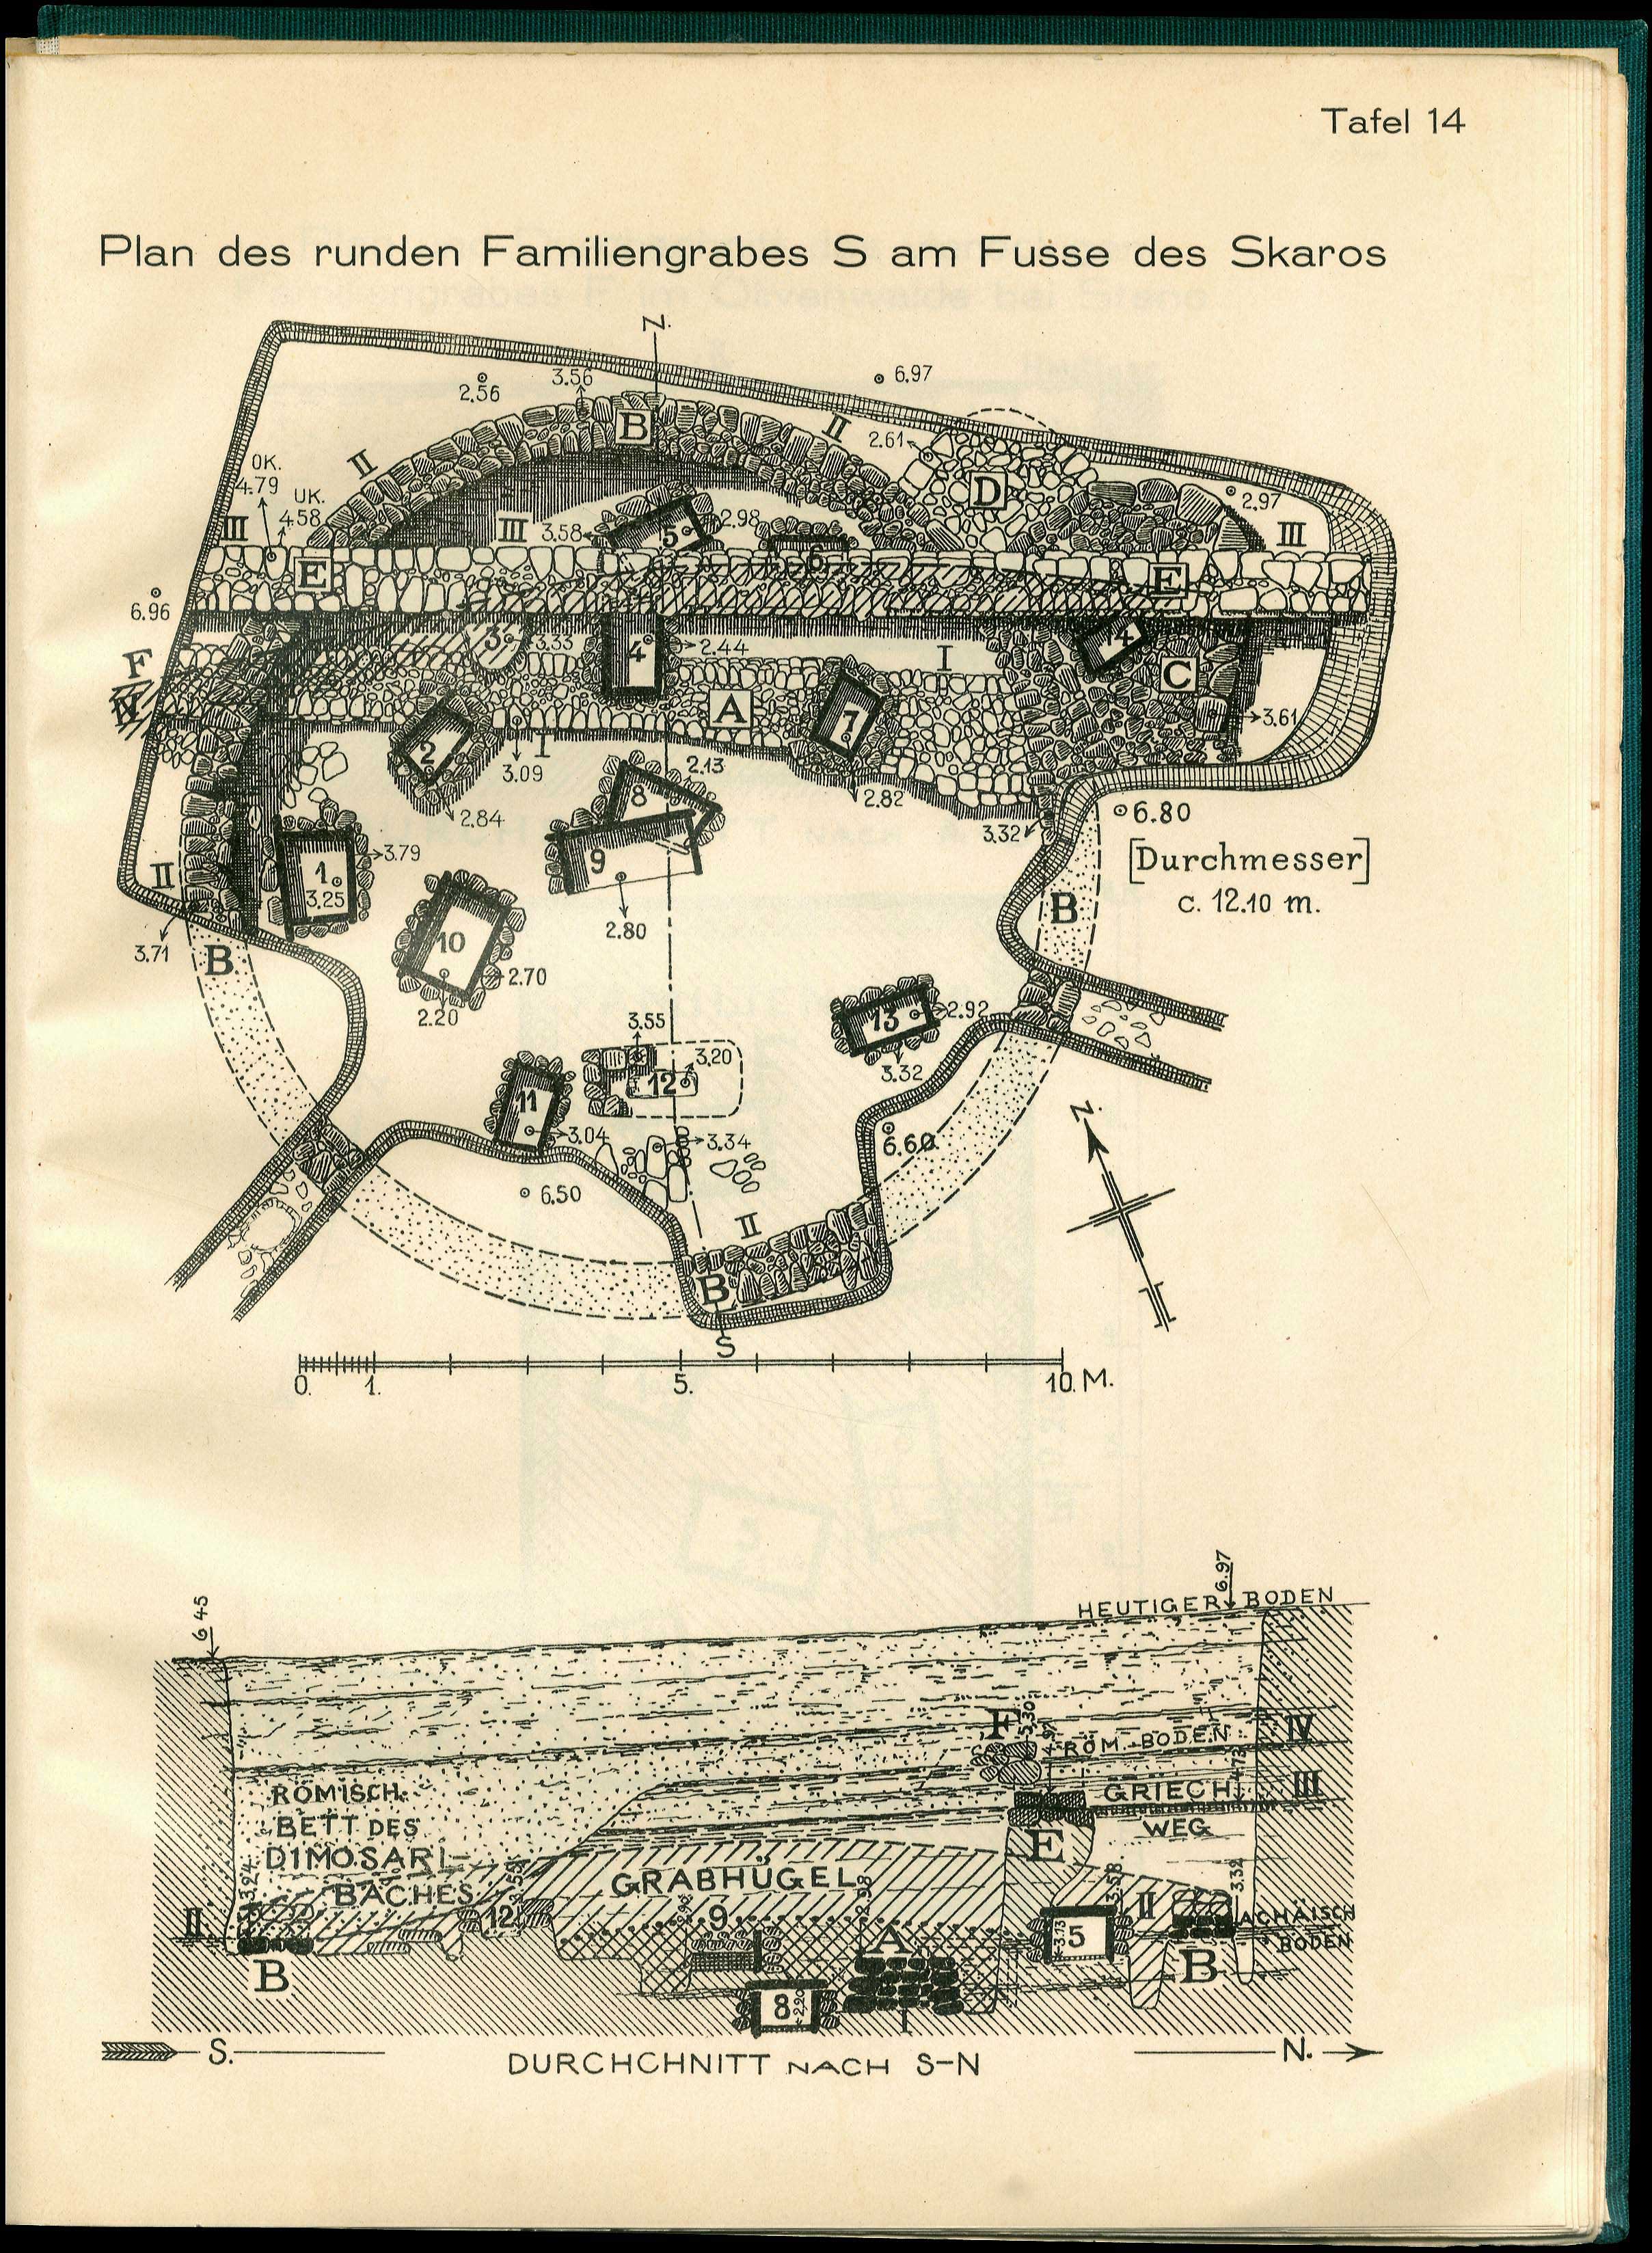 Tafel 14
Plan des runden Familiengrabes S am Fusse des Skaros
N.
2.56
3.56
6.97
B
II
II
2.61
D
OK.
4.79
UK.
4.58
III
III
3.58
5
2.98
6
2.97
III
E
E
6.96
F
IV
3
3.33
4
2.44
I
14
C
A
7
3.61
2
I
3.09
2.84
8
2.13
2.82
3.32
6.80
[Durchmesser]
c. 12.10 m.
1.
3.25
3.79
9
2.80
II
3.71
B
B
10
2.70
2.20
13
2.92
3.32
3.55
12
3.20
11
3.04
3.34
6.60
N.
6.50
II
B
S
0. 1. 5. 10. M.
6.97
6 45
HEUTIGER BODEN
F
5.30
IV
RÖM. BODEN
RÖMISCH.
BETT DES
DIMOSARI-
BACHES
GRIECH.
III
WEG
E
GRABHÜGEL
3.24
2.98
3.58
3.32
II
12
9
A
3.13
5
II
ACHÄISCH
BODEN
B
B
8
2.20
I
S.
DURCHCHNITT NACH S-N
N.